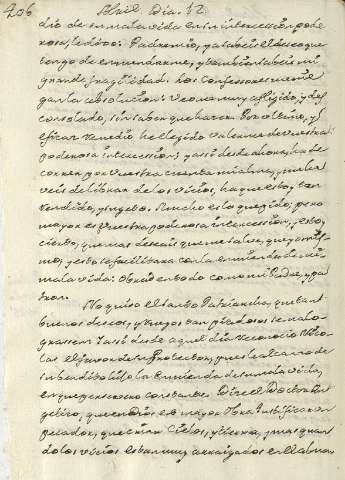 206 Abril Dia. 12.
dio de su mala vida en su intercession pode
rosa, le dixo: Padre mio, ya sabeis el deseo que
tengo de enmendarme, y tambien sabeis mi
grande fragilidad. Los confessores me nie
gan la absolucion: Veome muy aflijido, y des
consolado, sin saber que hacer. Por ultimo, y
eficaz remedio he elegido valerme de vuestra
poderosa intercession; y assi desde ahora, ha de
correr por vuestra cuenta mi alma, pues la
veis de librar de los vicios, a que esto, tan
rendido, y sugeto. Mucho es lo que pido; pero
mayor es vuestra poderosa intercession, y esto,
cierto, que mas deseais que me salve, que yo mis
mo, y esto se facilitara con la enmienda de mi
mala vida: Obrad en todo como mi Padre, y pa
tron.
No quiso el santo Patriarcha, que tan
buenos deseos, y ruegos tan piadosos se malo
grassen: assi desde aquel dia reconocio Nico
las el favor de su Protector, pues le alcanzo de
su bendito hijo la enmienda de su mala vida,
en que persevero constante. Dice el Doctor An
gelico, que en Dios es mayor obra justificar un
pecador, que criar cielos, y tierra, y mas quan
do los vicios estan muy arraigados en el alma